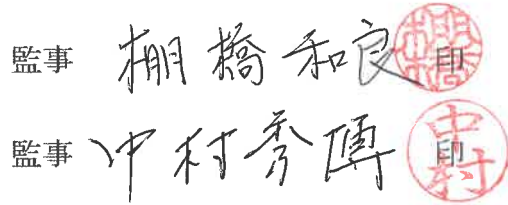 監事 棚橋和良 印
監事 中村秀傳 印